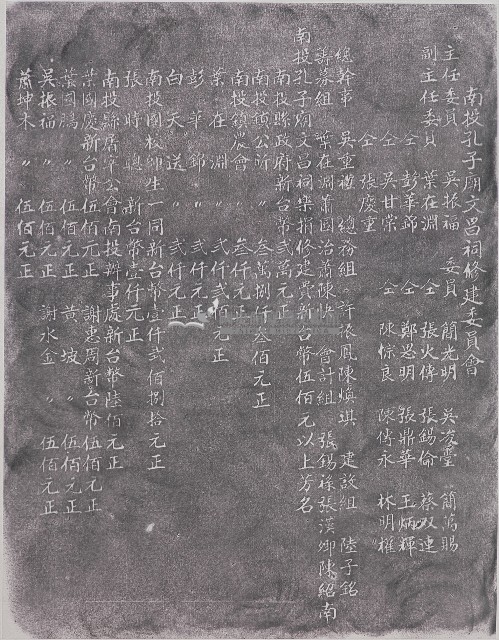 南投孔子廟文昌祠修建委員會
主任委員 吳振福 委員 簡光明 吳 簡萬賜
副主任委員 葉在淵 仝 張火傳 張錫倫 蔡双連
仝 彭華錦 仝 鄭忠明 張鼎華 王炳輝
仝 吳甘棠 仝 陳保良 陳傳永 林明權
仝 張慶重
總幹事 吳重禮 總務組 許振鳳陳煥琪 建設組 陸子銘
籌募組 葉在淵蕭國治蕭陳快 會計組 張錫祿張漢卿陳紹南
南投孔子廟文昌祠樂捐修建費新台幣伍佰元以上芳名
南投縣政府新台幣貳萬元正
南投鎮公所 〃 叁萬捌仟叁佰元正
南投鎮農會 〃 叁仟元正
葉在淵 〃 貳仟貳佰元正
彭華錦 〃 貳仟元正
白天送 〃 貳仟元正
南投國校師生一同新台幣壹仟貳佰捌拾元正
張時聰 新台幣壹仟元正
南投縣屠宰公會南投辦事處新台幣陸佰元正
葉國慶新台幣伍佰元正 謝惠周新台幣伍佰元正
葉國鵬 〃 伍佰元正 黃坡 〃 伍佰元正
吳振福 〃 伍佰元正 謝水金 〃 伍佰元正
蕭坤木 〃 伍佰元正